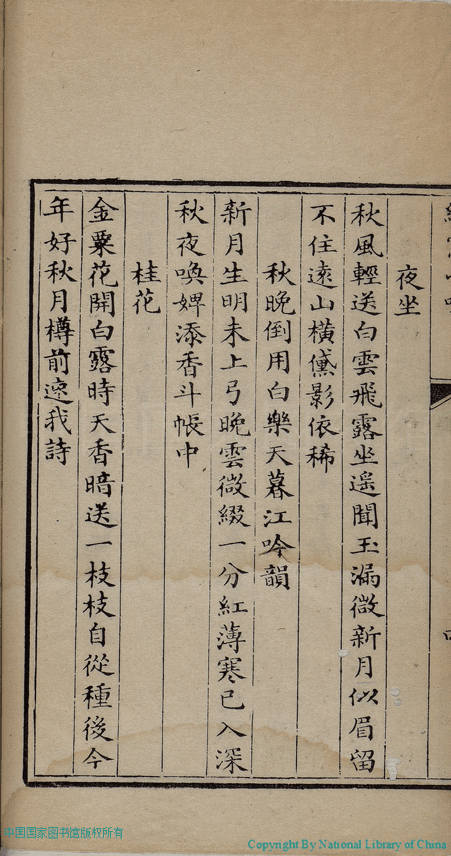 夜坐
秋風輕送白雲飛露坐遥聞玉漏微新月似眉留
不住遠山橫黛影依稀
秋晚倒用白樂天暮江吟韻
新月生明未上弓晚雲微綴一分紅薄寒已入深
秋夜喚婢添香斗帳中
桂花
金粟花開白露時天香暗送一枝枝自從種後今
年好秋月樽前速我詩
中国国家图书馆版权所有
Copyright By National Library of China